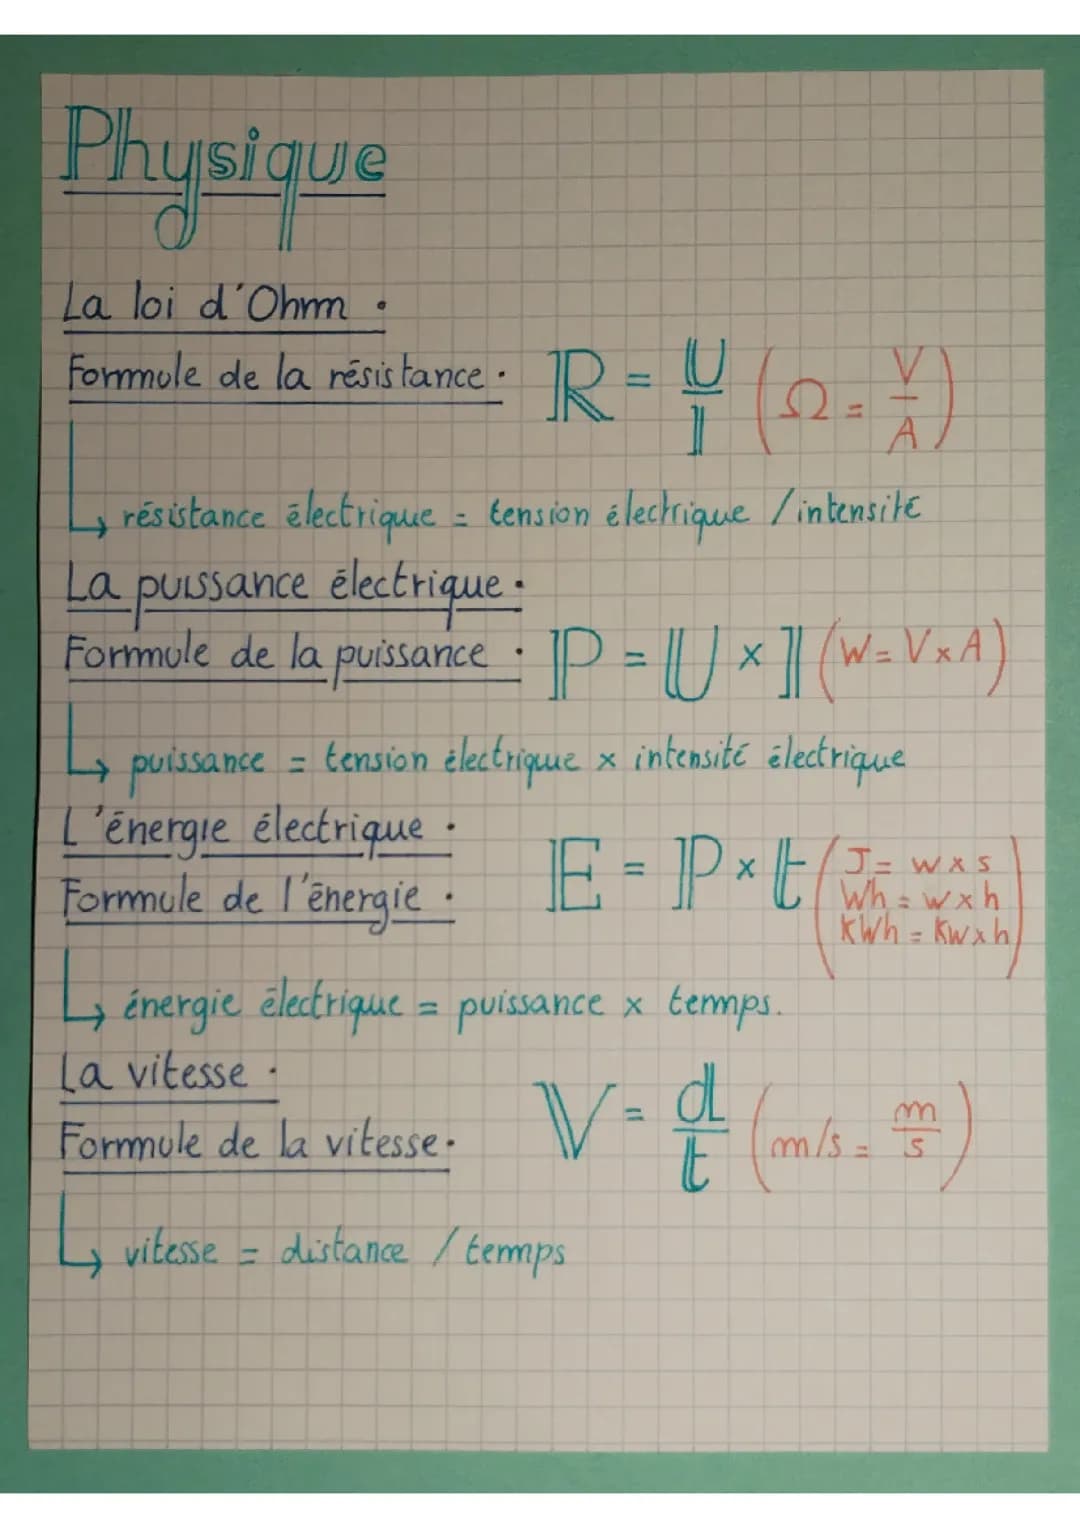 Physique
La loi d'Ohm :
Formule de la résistance : R = U/I (Ω = V/A)
↳ résistance électrique = tension électrique / intensité
La puissance électrique :
Formule de la puissance : P = U × I (W = V × A)
↳ puissance = tension électrique × intensité électrique
L'énergie électrique :
Formule de l'énergie : E = P × t (J = W × s
Wh = W × h
KWh = KW × h)
↳ énergie électrique = puissance × temps.
La vitesse :
Formule de la vitesse : V = d/t (m/s = m/s)
↳ vitesse = distance / temps